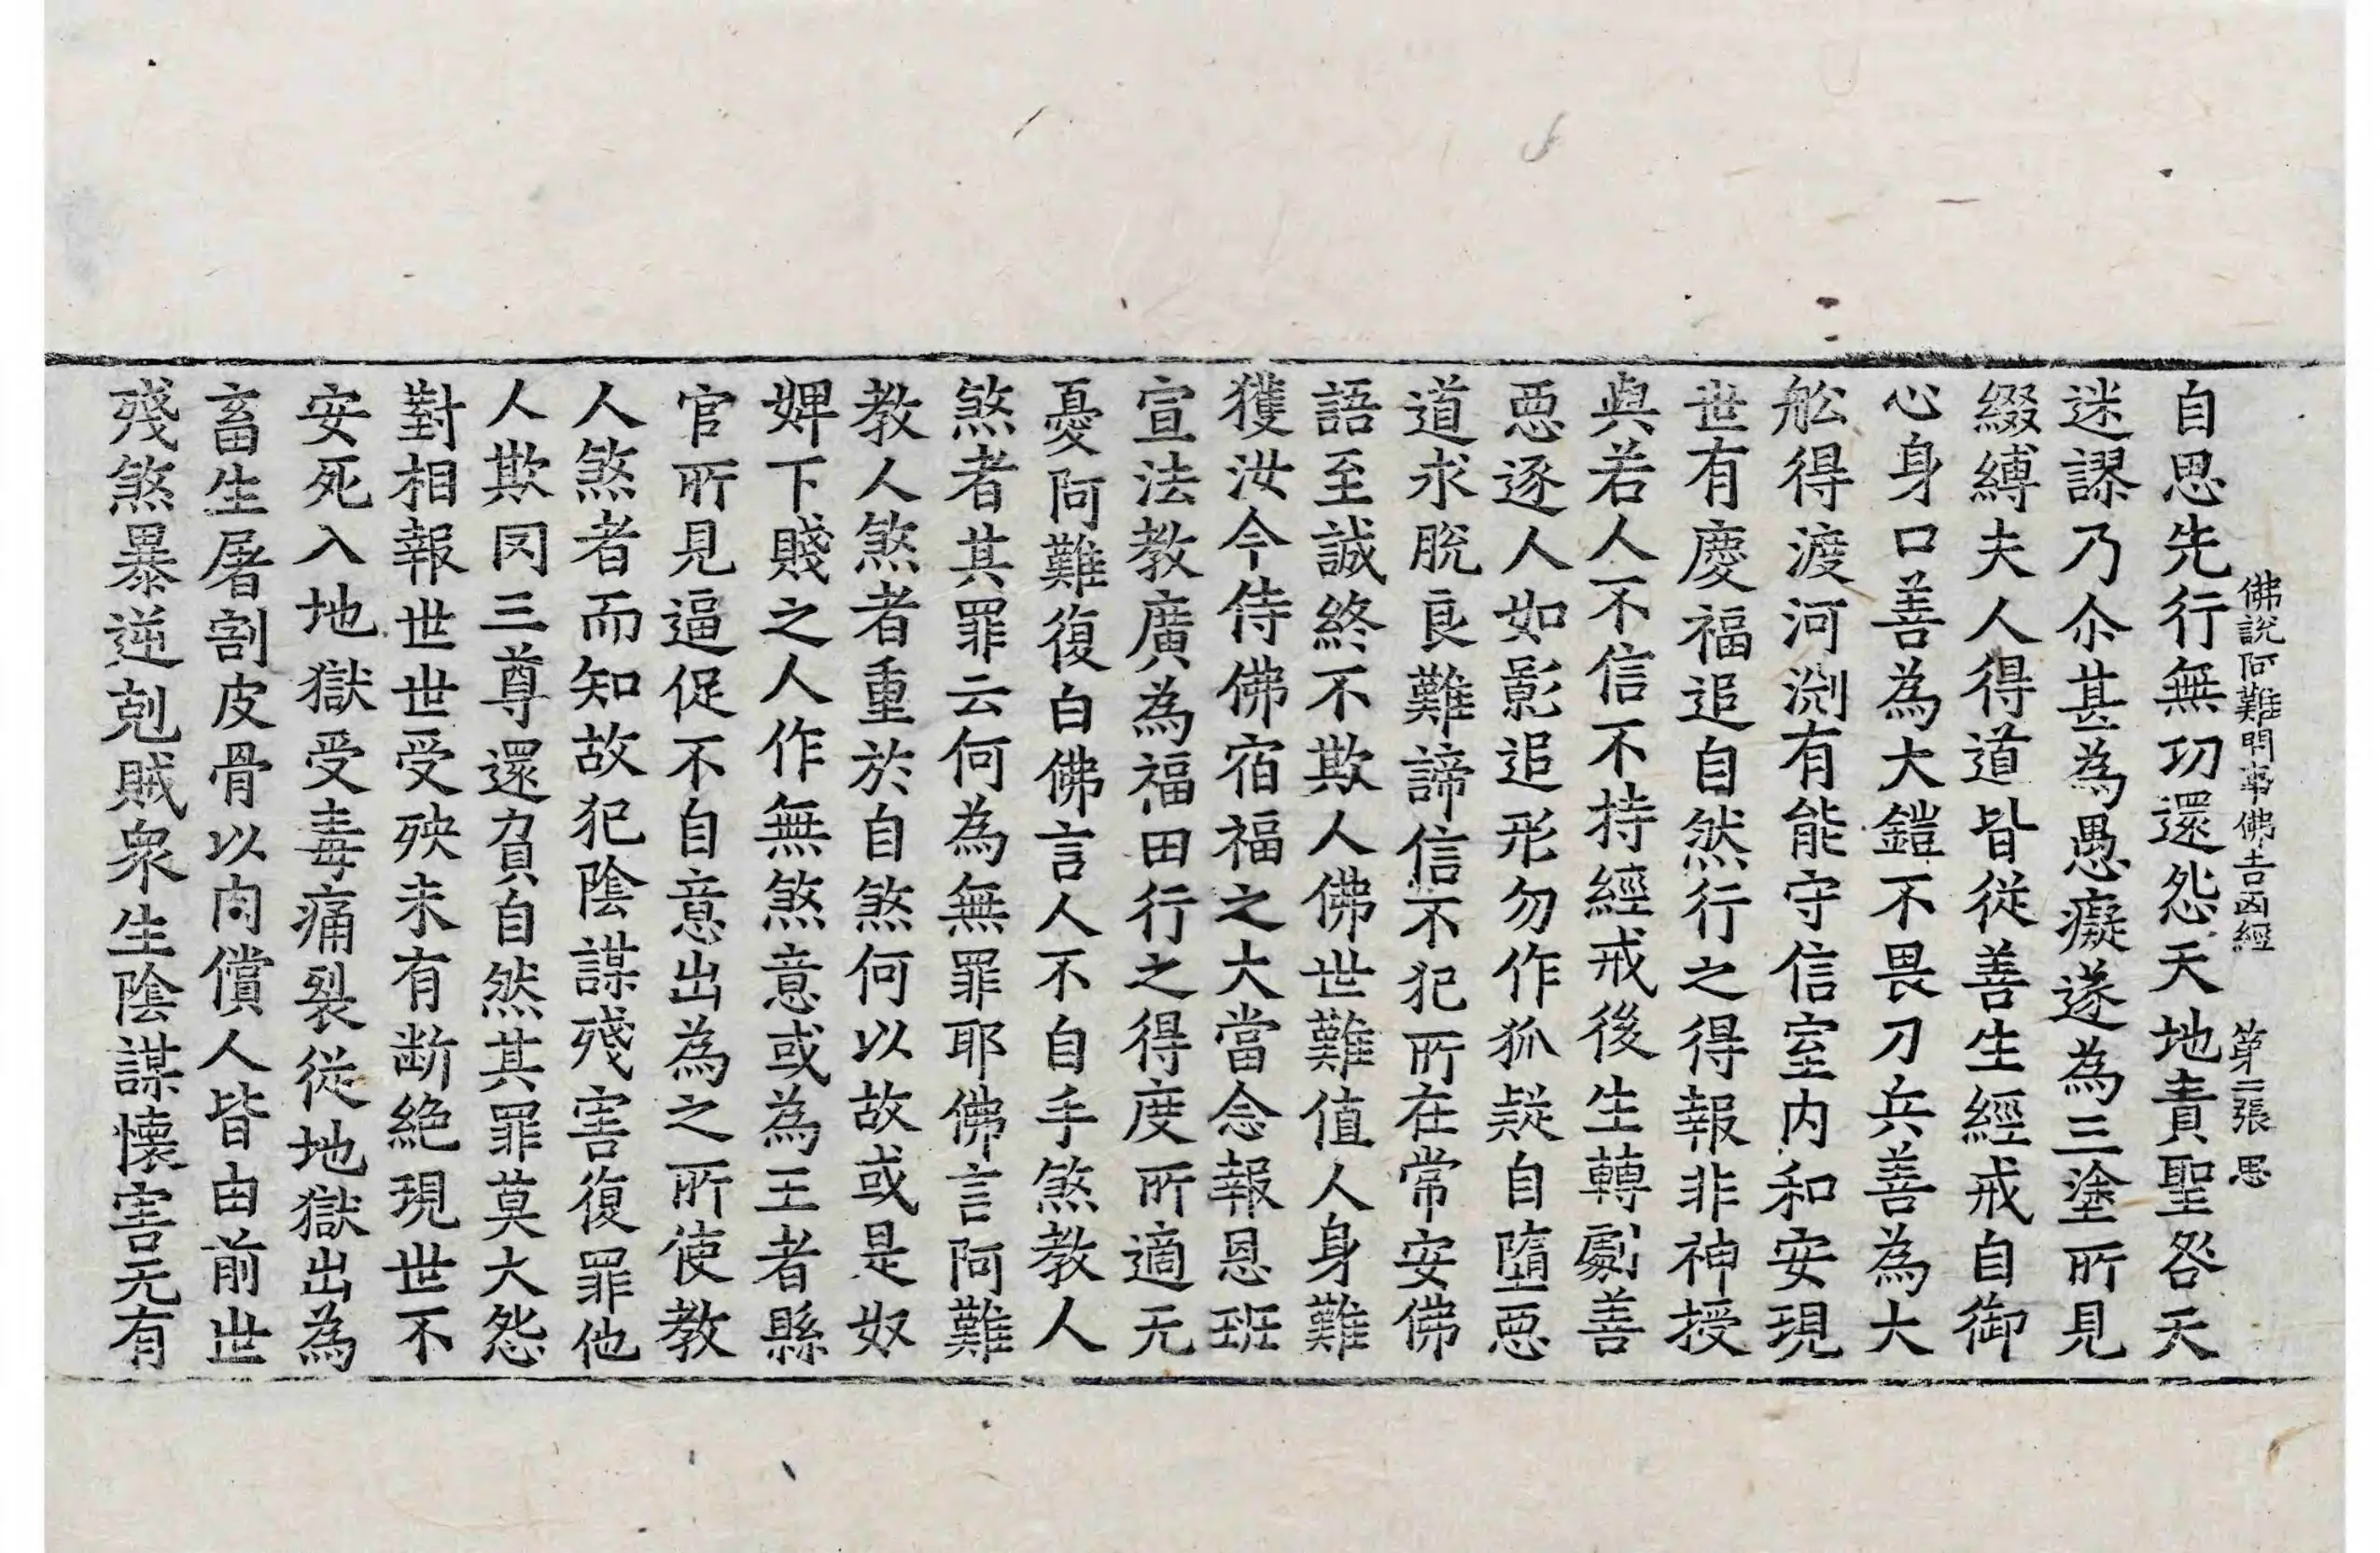 佛說阿難問事佛吉凶經　第二張　思
自思先行無功還怨天地責聖咎天
迷謬乃尒甚為愚癡遂為三塗所見
綴縛夫人得道皆從善生經戒自御
心身口善為大鎧不畏刀兵善為大
舩得渡河渕有能守信室内和安現
世有慶福追自然行之得報非神授
與若人不信不持經戒後生轉劇善
惡逐人如影追形勿作狐疑自墮惡
道求脫良難諦信不犯所在常安佛
語至誠終不欺人佛世難值人身難
獲汝今侍佛宿福之大當念報恩班
宣法教廣為福田行之得度所適无
憂阿難復白佛言人不自手煞教人
煞者其罪云何為無罪耶佛言阿難
教人煞者重於自煞何以故或是奴
婢下賤之人作無煞意或為王者縣
官所見逼促不自意出為之所使教
人煞者而知故犯陰謀殘害復罪他
人欺罔三尊還負自然其罪莫大怨
對相報世世受殃未有断絕現世不
安死入地獄受毒痛裂從地獄出為
畜生屠割皮骨以肉償人皆由前世
殘煞暴逆剋賊衆生陰謀懷害无有